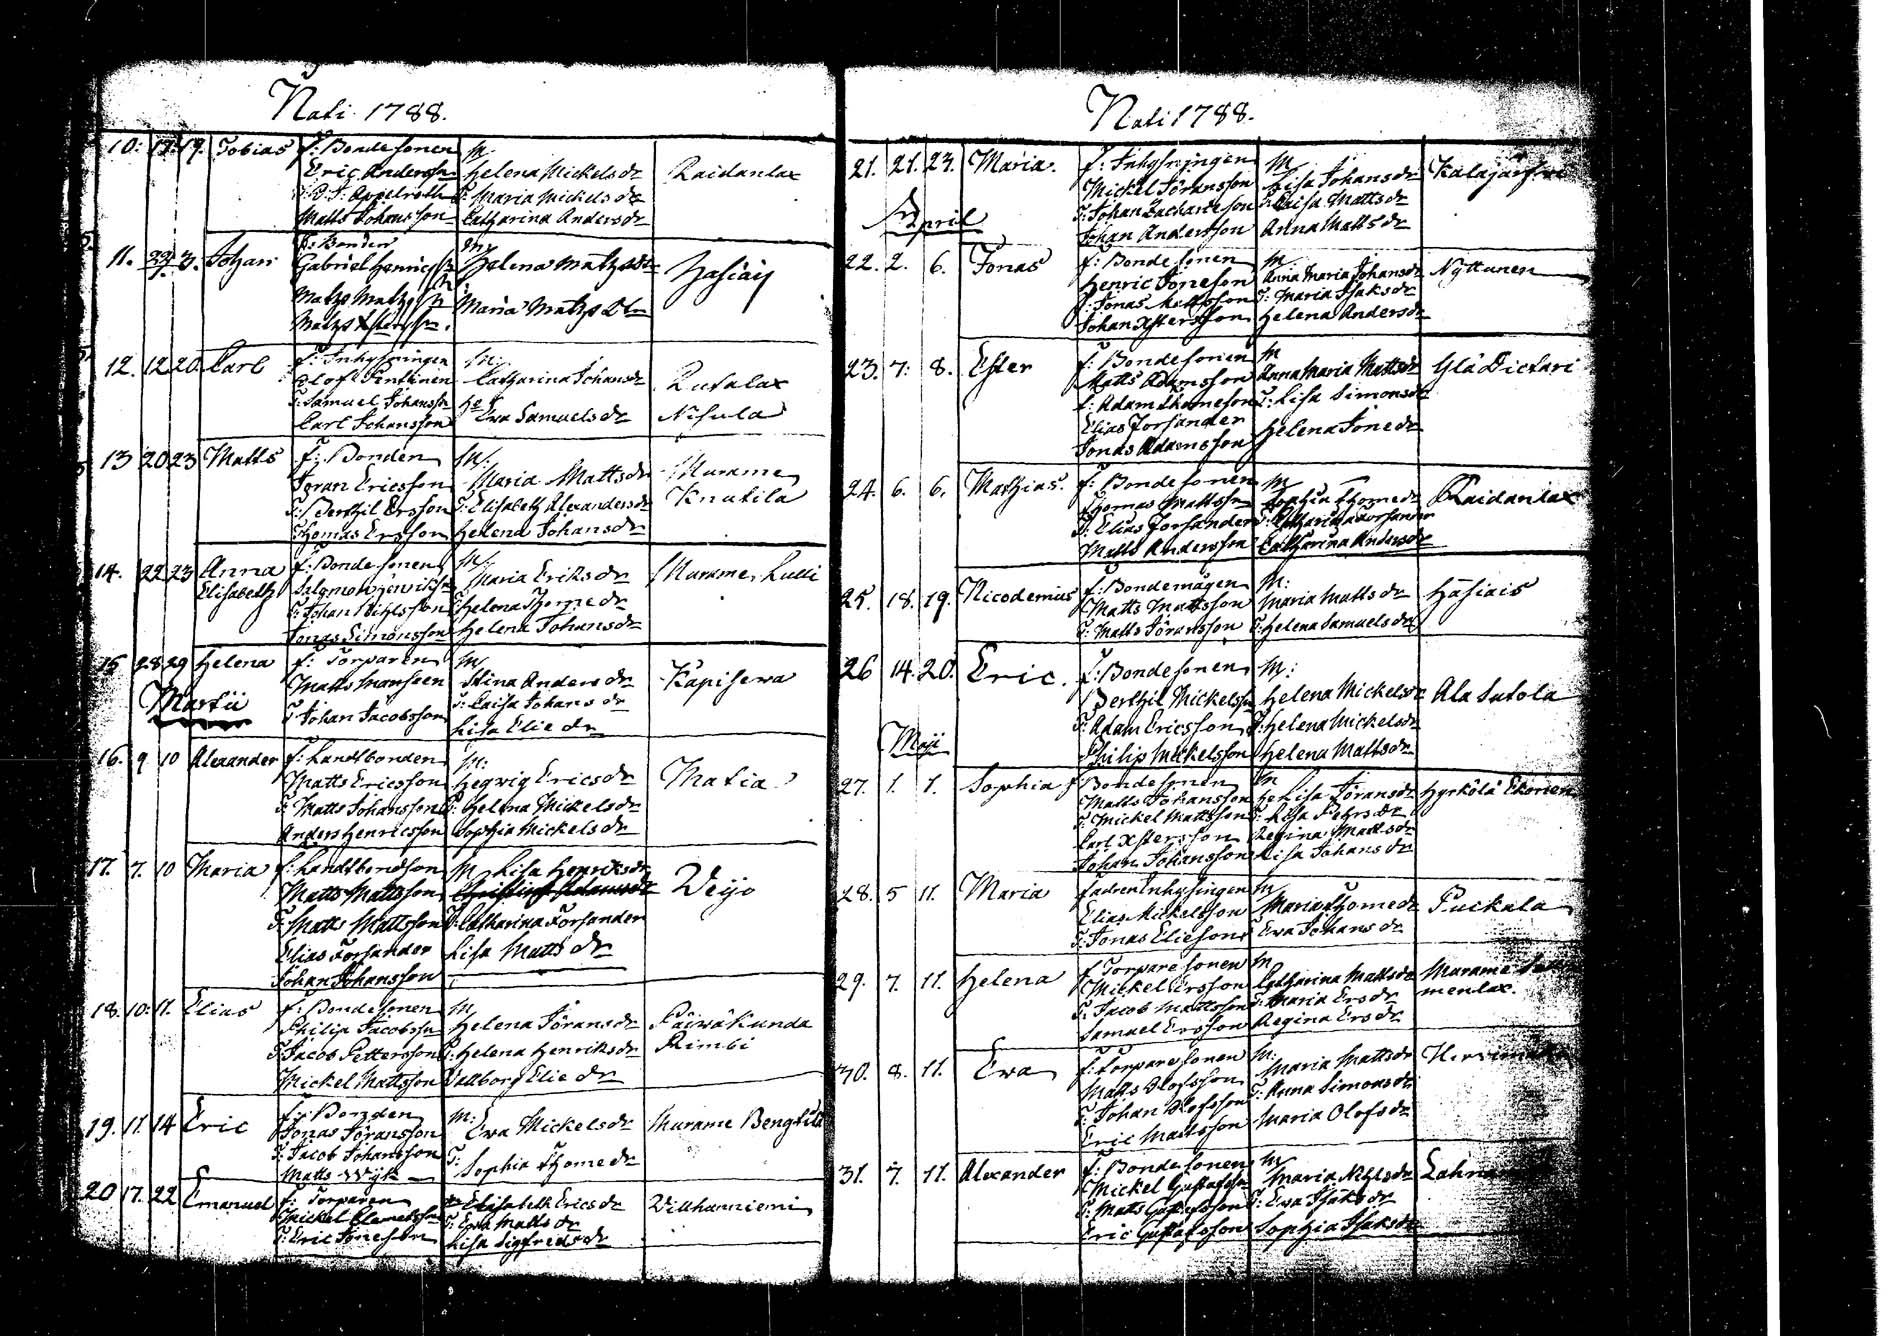 Nati 1788.
10. 17. 19. Tobias f: Bondesonen M Raidanlax
Eric Anderss. Helena Mickelsdr
T: D. J. Appelroth T: Maria Mickelsdr
Matts Johansson Catharina Andersdr
11. 3. Johan f: Bonden M
Gabriel Henricss Helena Matzsdr
Matzs Matzs Maria Matzs Dtr
Matzs
12. 12 20. Carl f: Inhysningen M:
Olof Pentinen Catharina Johansdr Rutalax
T: Samuel Johanss Eva Samuelsdr Nisula
Carl Johansson
13 20 23 Matts f: Bonden M: Murame
Jöran Ericsson Maria Mattsdr Knutila
T: Berthil Ersson T: Elisabeth Alexandersdr
Thomas Ersson Helena Johansdr
14. 22 23 Anna f: Bondesonen M: Murame Lulli
Elisabeth Salomon Henrikss Maria Eriksdr
T: Johan T: Helena Thomedr
Jonas Simonsson Helena Johansdr
15 28 29 Helena f: Torparen M Kapisewa
Matts Stina Andersdr
T: Johan Jacobsson T: Caisa Johansdr
Lisa Eliedr
Martii
16. 9 10 Alexander f: Landtbonden M:
Matts Ericsson Hegvig Ericsdr Matia
T: Matts Johansson T: Helena Mickelsdr
Anders Henricsson Sophia Mickelsdr
17. 7. 10 Maria f: Landtbondson M Lisa Henriksdr
Matts Mattsson Weijo
T: Matts Mattsson T: Catharina Forsander
Elias Forsander Lisa Mattsdr
Johan Johansson
18. 10. 11. Elias f: Bondesonen M
Philip Jacobss Helena Jöransdr Päiwäkunda
T: Jacob Pettersson T: Helena Henriksdr Rimbi
Mickel Mattsson Wallborg Eliedr
19. 11. 14 Eric f: Bonden M: Murame Bengtila
Jonas Jöransson Eva Mickelsdr
T: Jacob Johansson T: Sophia Thomedr
Matts Wijk
20 17. 22 Emanuel f: Torparen M Elisabeth Ericsdr Wilhanniemi
Mickel T: Eva Mattsdr
T: Eric Joneson Lisa Sigfredsdr
Nati 1788.
21. 21. 23. Maria. f: Inhysningen M
Mickel Jöransson Lisa Johansdr
T: Johan Zachariesson T: Caisa Mattsdr
Johan Andersson Anna Mattsdr
April
22. 2. 6. Jonas f: Bondesonen M Nyttunen
Henric Joneson Anna Maria Johansdr
T: Jonas Mattsson T: Maria Isaksdr
Johan Xstersson Helena Andersdr
23. 7. 8. Ester f: Bondesonen M Glä Dictari
Matts Adamsson Anna Maria Mattsdr
T: Adam Thomeson T: Lisa Simonsdr
Elias Forsander Helena Jonedr
Jonas Adamsson
24. 6. 6. Mathias. f: Bondesonen M Raidanlax
Thomas Mattss Sophia Thomedr
T: Elias Forsander T: Catharina Forsander
Matts Andersson Catharina Andersdr
25. 18. 19. Nicodemus f: Bondemågen M: Häsiais
Matts Mattsson Maria Mattsdr
T: Matts Jöransson T: Helena Samuelsdr
26 14. 20. Eric. f: Bondesonen M: Ala Sutola
Berthil Mickelss Helena Mickelsdr
T: Adam Ericsson T: Helena Mickelsdr
Philip Mickelsson Helena Mattsdr
Maji
27. 1. 1. Sophia f Bondesonen M Hyrkölä Ekonen
Matts Johansson Lisa Jöransdr
T: Mickel Mattsson T: Lisa Pehrsdr
Carl Xstersson Regina Mattsdr
Johan Johansson Lisa Johansdr
28. 5 11. Maria fadren Inhysingen M Puickala
Elias Mickelsson Maria Thomedr
T: Jonas Elieson Eva Johansdr
29. 7. 11. Helena f Torparesonen M Murame
Mickel Ersson Catharina Mattsdr menlax.
T: Jacob Mattsson T: Maria Ersdr
Samuel Ersson Regina Ersdr
30. 8. 11. Eva f: Torparesonen M:
Matts Olofsson Maria Mattsdr
T: Johan Olofsson T: Anna Simonsdr
Eric Mattsson Maria Olofsdr
31. 7. 11. Alexander f: Bondesonen M
Mickel Gustafsson Maria
T: Matts Gustafsson T: Eva Isaksdr
Eric Gustafsson Sophia Isaksdr